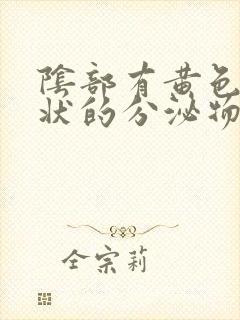 陰部有黃色
狀的分泌物
全宗莉